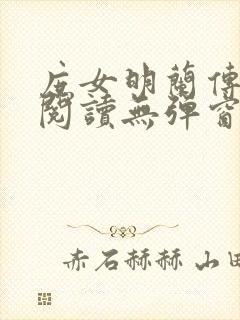 庶女明蘭傳
閱讀無彈窗
赤石赫赫 山田